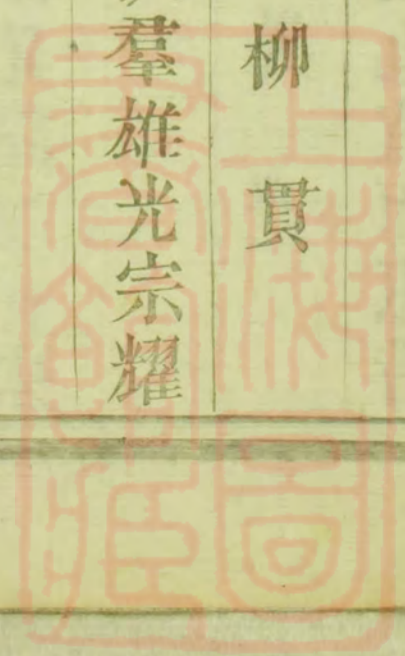 柳貫
羣雄光宗耀
上海圖書館藏